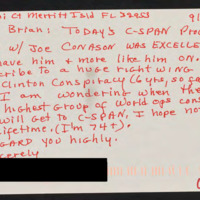 Ct Merritt Isld FL 32953 9/
Brian: TODAY'S C-SPAN Pro
w/ Joe CONASON WAS EXCELLE
have him & more like him ON.
cribe To a huge right wing
Clinton Conspiracy (6 yrs, so fa
I am wondering when the
highest group of world ops cons
will get to C-SPAN, I hope no
ifetime. (I'm 74+).
GARD you highly.
cerely